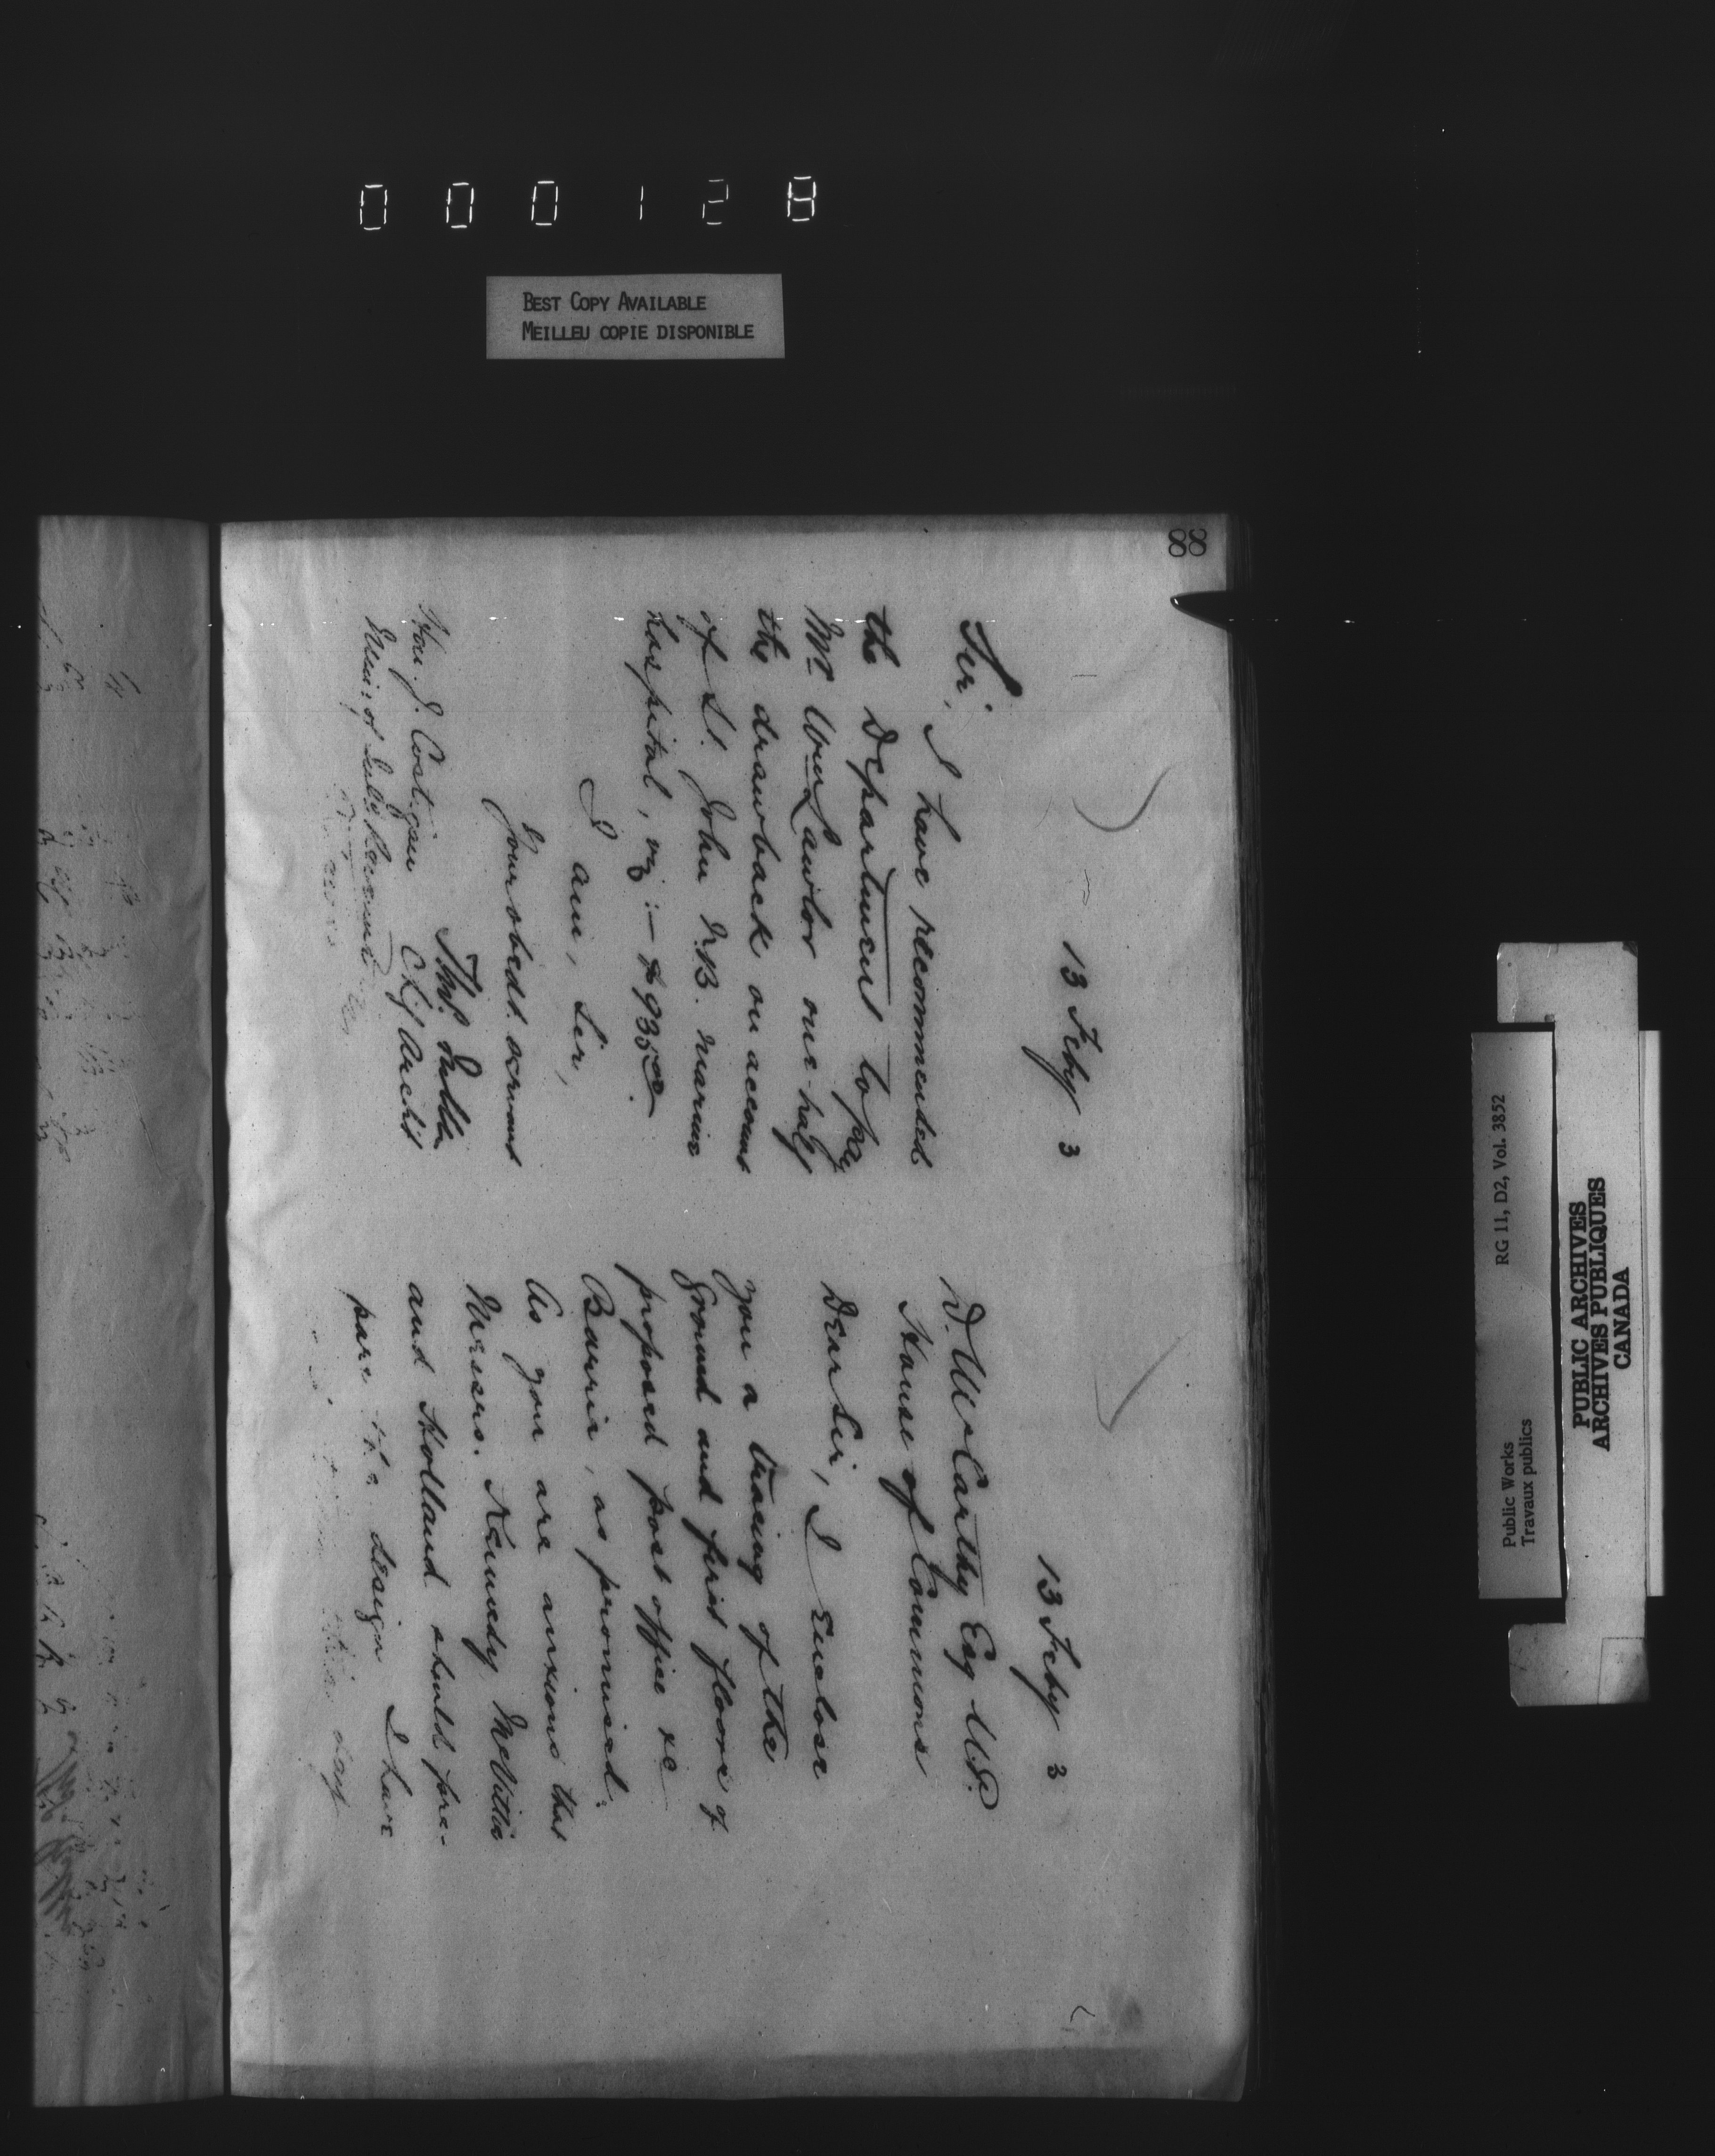 000128
BEST COPY AVAILABLE
MEILLEU COPIE DISPONIBLE
88
13 Feby 3
Sir,
I have recommended
the Department to pay
Mr. Wm Lawlor one-half
the drawback on account
of St. John N.B. marine
hospital, viz:- $935.00.
I am, Sir,
Your obedt. servant
Thos. Fuller
Chf Archt
Hon. J. Costigan
Min: of Inld Revenue
13 Feby 3
D. McCarthy Esq M.P.
House of Commons
Dear Sir, I Enclose
you a tracing of the
Ground and first floors of
proposed post office &c
Barrie, as promised.
As you are anxious that
Messrs. Kennedy McVittie
and Holland should pre-
pare the design I have
Public Works
Travaux publics
RG 11, D2, Vol. 3852
PUBLIC ARCHIVES
ARCHIVES PUBLIQUES
CANADA